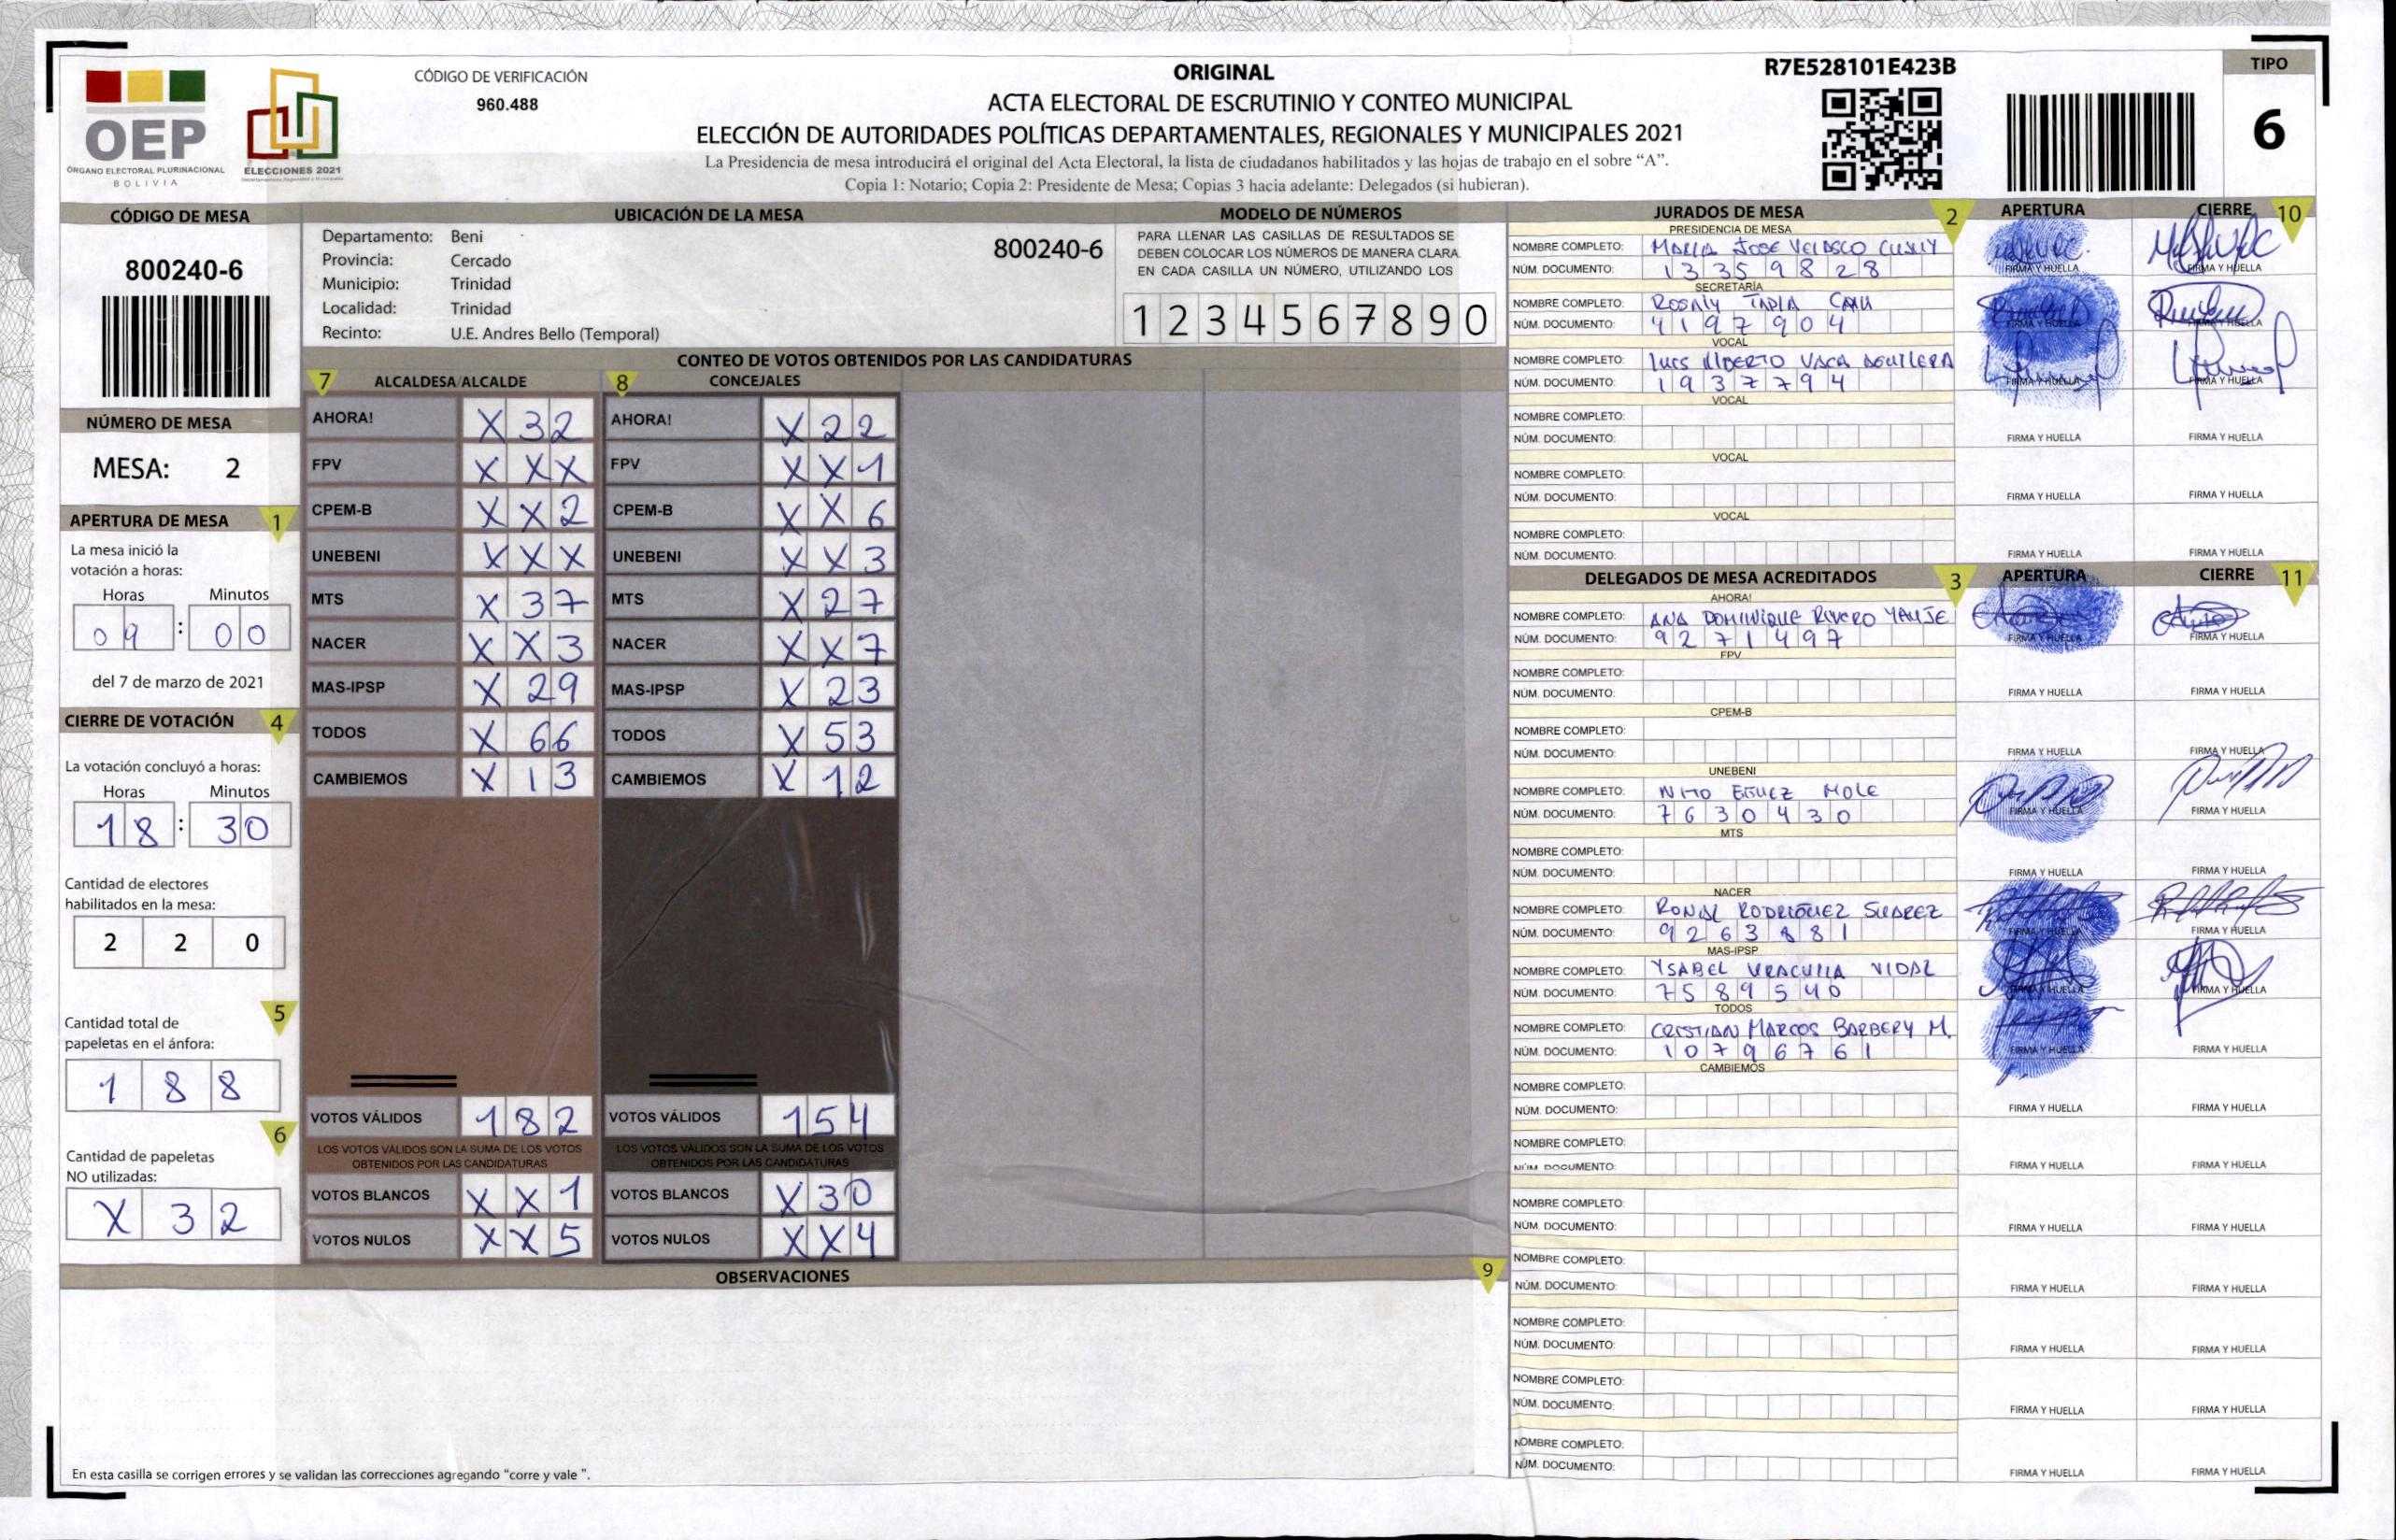 OEP
ÓRGANO ELECTORAL PLURINACIONAL
BOLIVIA
ELECCIONES 2021
CÓDIGO DE VERIFICACIÓN
960.488
ORIGINAL
ACTA ELECTORAL DE ESCRUTINIO Y CONTEO MUNICIPAL
ELECCIÓN DE AUTORIDADES POLÍTICAS DEPARTAMENTALES, REGIONALES Y MUNICIPALES 2021
La Presidencia de mesa introducirá el original del Acta Electoral, la lista de ciudadanos habilitados y las hojas de trabajo en el sobre “A”.
Copia 1: Notario; Copia 2: Presidente de Mesa; Copias 3 hacia adelante: Delegados (si hubieran).
R7E528101E423B
TIPO
6
CÓDIGO DE MESA
800240-6
NÚMERO DE MESA
MESA: 2
APERTURA DE MESA 1
La mesa inició la
votación a horas:
Horas Minutos
09 : 00
del 7 de marzo de 2021
CIERRE DE VOTACIÓN 4
La votación concluyó a horas:
Horas Minutos
18 : 30
Cantidad de electores
habilitados en la mesa:
2 2 0
5
Cantidad total de
papeletas en el ánfora:
1 8 8
6
Cantidad de papeletas
NO utilizadas:
X 3 2
UBICACIÓN DE LA MESA
Departamento: Beni
800240-6
Provincia: Cercado
Municipio: Trinidad
Localidad: Trinidad
Recinto: U.E. Andres Bello (Temporal)
MODELO DE NÚMEROS
PARA LLENAR LAS CASILLAS DE RESULTADOS SE
DEBEN COLOCAR LOS NÚMEROS DE MANERA CLARA.
EN CADA CASILLA UN NÚMERO, UTILIZANDO LOS
1 2 3 4 5 6 7 8 9 0
CONTEO DE VOTOS OBTENIDOS POR LAS CANDIDATURAS
7 ALCALDESA/ALCALDE 8 CONCEJALES
AHORA! X 3 2 AHORA! X 2 2
FPV X X X FPV X X 1
CPEM-B X X 2 CPEM-B X X 6
UNEBENI X X X UNEBENI X X 3
MTS X 3 7 MTS X 2 7
NACER X X 3 NACER X X 7
MAS-IPSP X 2 9 MAS-IPSP X 2 3
TODOS X 6 6 TODOS X 5 3
CAMBIEMOS X 1 3 CAMBIEMOS X 1 2
VOTOS VÁLIDOS 1 8 2 VOTOS VÁLIDOS 1 5 4
LOS VOTOS VÁLIDOS SON LA SUMA DE LOS VOTOS LOS VOTOS VÁLIDOS SON LA SUMA DE LOS VOTOS
OBTENIDOS POR LAS CANDIDATURAS OBTENIDOS POR LAS CANDIDATURAS
VOTOS BLANCOS X X 1 VOTOS BLANCOS X 3 0
VOTOS NULOS X X 5 VOTOS NULOS X X 4
OBSERVACIONES 9
En esta casilla se corrigen errores y se validan las correcciones agregando “corre y vale ”.
JURADOS DE MESA 2 APERTURA CIERRE 10
PRESIDENCIA DE MESA
NOMBRE COMPLETO: MARIA JOSE VELASCO
NÚM. DOCUMENTO: 13359828 FIRMA Y HUELLA FIRMA Y HUELLA
SECRETARÍA
NOMBRE COMPLETO: ROSALY TAPIA
NÚM. DOCUMENTO: 4197904 FIRMA Y HUELLA FIRMA Y HUELLA
VOCAL
NOMBRE COMPLETO: LUIS ALBERTO VACA AGUILERA
NÚM. DOCUMENTO: 1937794 FIRMA Y HUELLA FIRMA Y HUELLA
VOCAL
NOMBRE COMPLETO:
NÚM. DOCUMENTO: FIRMA Y HUELLA FIRMA Y HUELLA
VOCAL
NOMBRE COMPLETO:
NÚM. DOCUMENTO: FIRMA Y HUELLA FIRMA Y HUELLA
VOCAL
NOMBRE COMPLETO:
NÚM. DOCUMENTO: FIRMA Y HUELLA FIRMA Y HUELLA
DELEGADOS DE MESA ACREDITADOS 3 APERTURA CIERRE 11
AHORA!
NOMBRE COMPLETO: ANA DOMINIQUE RIVERO
NÚM. DOCUMENTO: 9271497 FIRMA Y HUELLA FIRMA Y HUELLA
FPV
NOMBRE COMPLETO:
NÚM. DOCUMENTO: FIRMA Y HUELLA FIRMA Y HUELLA
CPEM-B
NOMBRE COMPLETO:
NÚM. DOCUMENTO: FIRMA Y HUELLA FIRMA Y HUELLA
UNEBENI
NOMBRE COMPLETO: MOLE
NÚM. DOCUMENTO: 7630430 FIRMA Y HUELLA FIRMA Y HUELLA
MTS
NOMBRE COMPLETO:
NÚM. DOCUMENTO: FIRMA Y HUELLA FIRMA Y HUELLA
NACER
NOMBRE COMPLETO: RONAL RODRIGUEZ SUAREZ
NÚM. DOCUMENTO: 9263881 FIRMA Y HUELLA FIRMA Y HUELLA
MAS-IPSP
NOMBRE COMPLETO: YSABEL VIDAL
NÚM. DOCUMENTO: 7589540 FIRMA Y HUELLA FIRMA Y HUELLA
TODOS
NOMBRE COMPLETO: CRISTIAN MARCOS BARBERY M.
NÚM. DOCUMENTO: 10796761 FIRMA Y HUELLA FIRMA Y HUELLA
CAMBIEMOS
NOMBRE COMPLETO:
NÚM. DOCUMENTO: FIRMA Y HUELLA FIRMA Y HUELLA
NOMBRE COMPLETO:
NÚM. DOCUMENTO: FIRMA Y HUELLA FIRMA Y HUELLA
NOMBRE COMPLETO:
NÚM. DOCUMENTO: FIRMA Y HUELLA FIRMA Y HUELLA
NOMBRE COMPLETO:
NÚM. DOCUMENTO: FIRMA Y HUELLA FIRMA Y HUELLA
NOMBRE COMPLETO:
NÚM. DOCUMENTO: FIRMA Y HUELLA FIRMA Y HUELLA
NOMBRE COMPLETO:
NÚM. DOCUMENTO: FIRMA Y HUELLA FIRMA Y HUELLA
NOMBRE COMPLETO:
NÚM. DOCUMENTO: FIRMA Y HUELLA FIRMA Y HUELLA